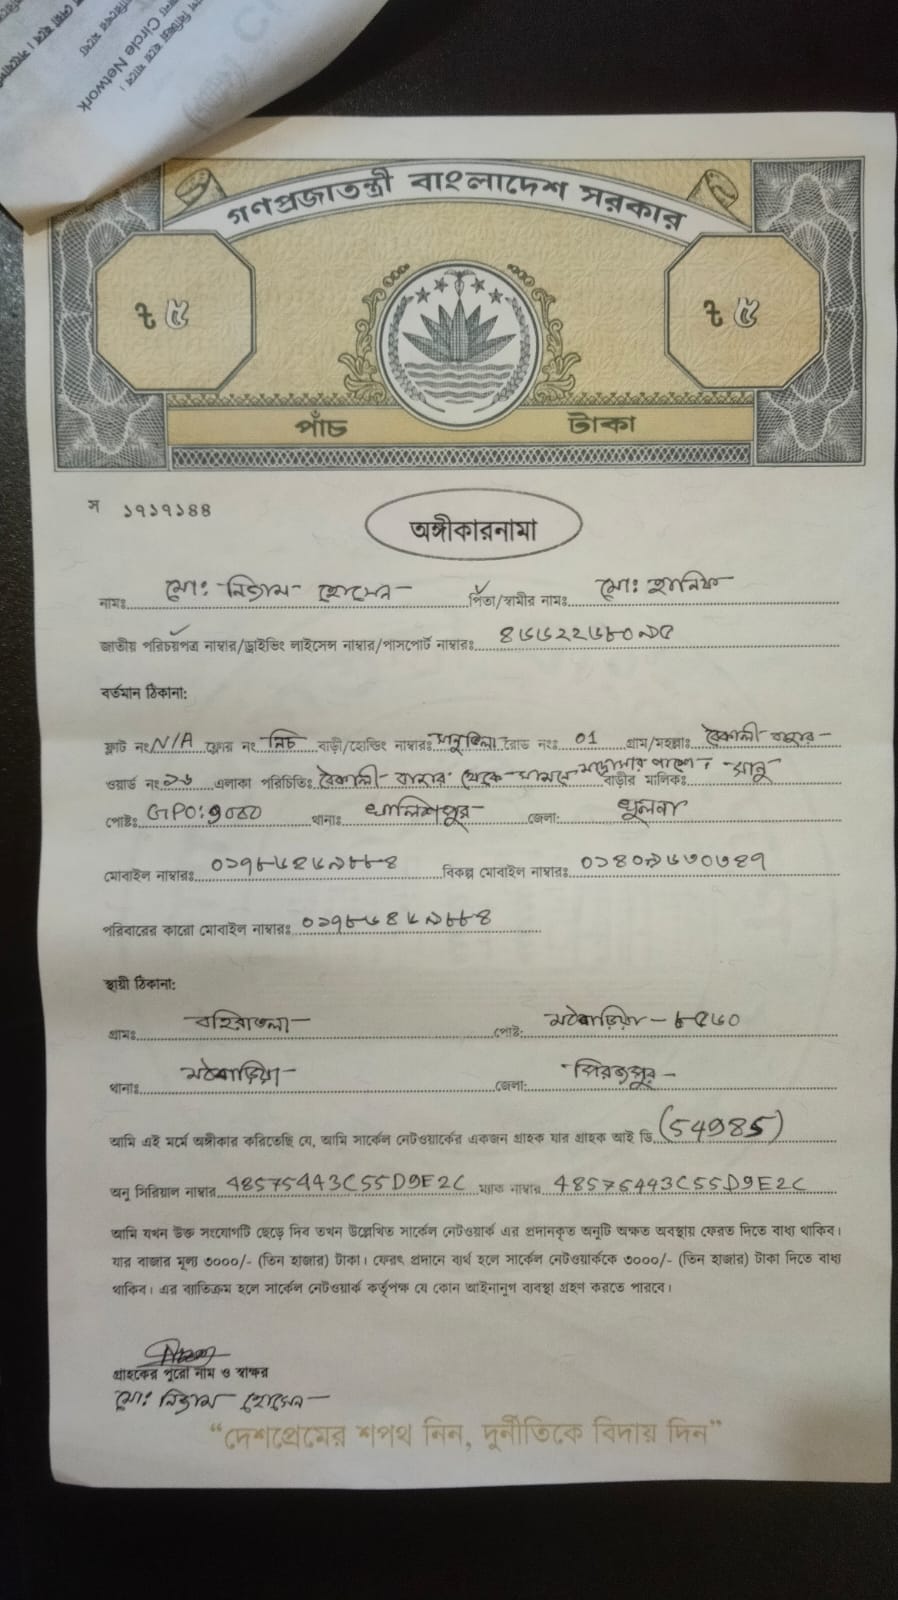 Circle Network
গণপ্রজাতন্ত্রী বাংলাদেশ সরকার
৳ ৫ ৳ ৫
পাঁচ টাকা
স ১৭১৭১৪৪
অঙ্গীকারনামা
নামঃ মো: নিজাম হোসেন পিতা/স্বামীর নামঃ মো: হানিফ
জাতীয় পরিচয়পত্র নাম্বার/ড্রাইভিং লাইসেন্স নাম্বার/পাসপোর্ট নাম্বারঃ ৪৬৬২২৬৮০৯৫
বর্তমান ঠিকানা:
ফ্লাট নং N/A ফ্লোর নং নিচ বাড়ী/হোল্ডিং নাম্বারঃ রোড নংঃ 01 গ্রাম/মহল্লাঃ বৈকালী বাজার
ওয়ার্ড নং ১৬ এলাকা পরিচিতিঃ বৈকালী বাজার থেকে সামনে মাদ্রাসার পাশে বাড়ীর মালিকঃ সানু
পোষ্টঃ GPO: ৯০০০ থানাঃ খালিশপুর জেলা: খুলনা
মোবাইল নাম্বারঃ ০১৭৮৬৪৬৯৮৮৪ বিকল্প মোবাইল নাম্বারঃ ০১৪০৯৬৩০৩৪৭
পরিবারের কারো মোবাইল নাম্বারঃ ০১৭৮৬৪৬৯৮৮৪
স্থায়ী ঠিকানা:
গ্রামঃ পোষ্ট: মঠবাড়িয়া - ৮৫৬০
থানাঃ মঠবাড়িয়া জেলা: পিরজপুর
আমি এই মর্মে অঙ্গীকার করিতেছি যে, আমি সার্কেল নেটওয়ার্কের একজন গ্রাহক যার গ্রাহক আই ডি (54985)
অনু সিরিয়াল নাম্বার 48575443C55D9E2C ম্যাক নাম্বার 48575443C55D9E2C
আমি যখন উক্ত সংযোগটি ছেড়ে দিব তখন উল্লেখিত সার্কেল নেটওয়ার্ক এর প্রদানকৃত অনুটি অক্ষত অবস্থায় ফেরত দিতে বাধ্য থাকিব।
যার বাজার মূল্য ৩০০০/- (তিন হাজার) টাকা। ফেরৎ প্রদানে ব্যর্থ হলে সার্কেল নেটওয়ার্ককে ৩০০০/- (তিন হাজার) টাকা দিতে বাধ্য
থাকিব। এর ব্যতিক্রম হলে সার্কেল নেটওয়ার্ক কর্তৃপক্ষ যে কোন আইনানুগ ব্যবস্থা গ্রহণ করতে পারবে।
গ্রাহকের পুরো নাম ও স্বাক্ষর
মো: নিজাম হোসেন
“দেশপ্রেমের শপথ নিন, দুর্নীতিকে বিদায় দিন”